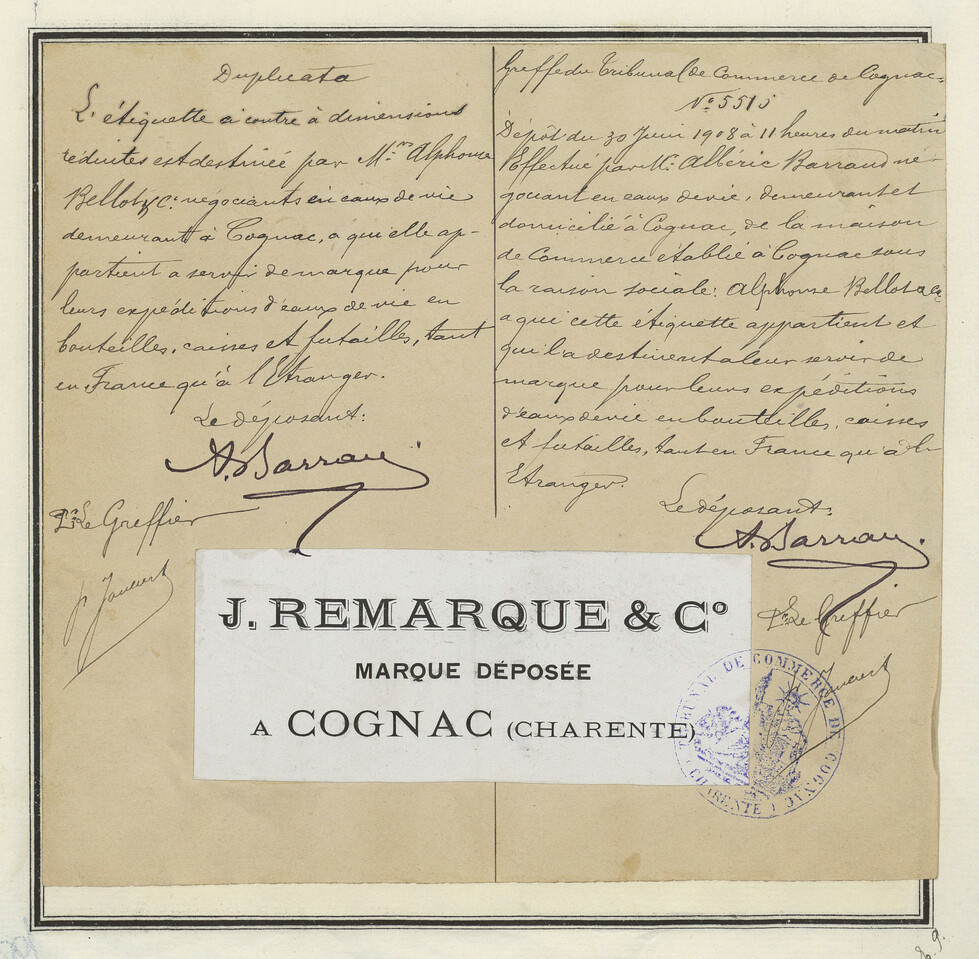 Duplicata
L'étiquette ci contre à dimensions
réduites est destinée par M.rs Alphonse
Bellot & Cie négociants en eaux de vie
demeurant à Cognac, a qui elle ap-
partient a servir de marque pour
leurs expéditions d'eaux de vie en
bouteilles, caisses et futailles, tant
en France qu'à l'Etranger.
Le déposant:
A. Barraud
Pr. Le Greffier
Greffe du Tribunal de Commerce de Cognac
N° 5515
Dépôt du 30 Juin 1908 à 11 heures du matin
Effectué par M. Albéric Barraud né-
gociant en eaux de vie, demeurant et
domicilié à Cognac, de la maison
de Commerce établie à Cognac sous
la raison sociale: Alphonse Bellot & Cie
a qui cette étiquette appartient et
qui l'a destinent a leur servir de
marque pour leurs expéditions
d'eaux de vie en bouteilles, caisses
et futailles, tant en France qu'à l'
Etranger.
Le déposant,
A. Barraud
Pr. Le Greffier
J. REMARQUE & Co
MARQUE DÉPOSÉE
A COGNAC (CHARENTE)
TRIBUNAL DE COMMERCE DE COGNAC
(CHARENTE)